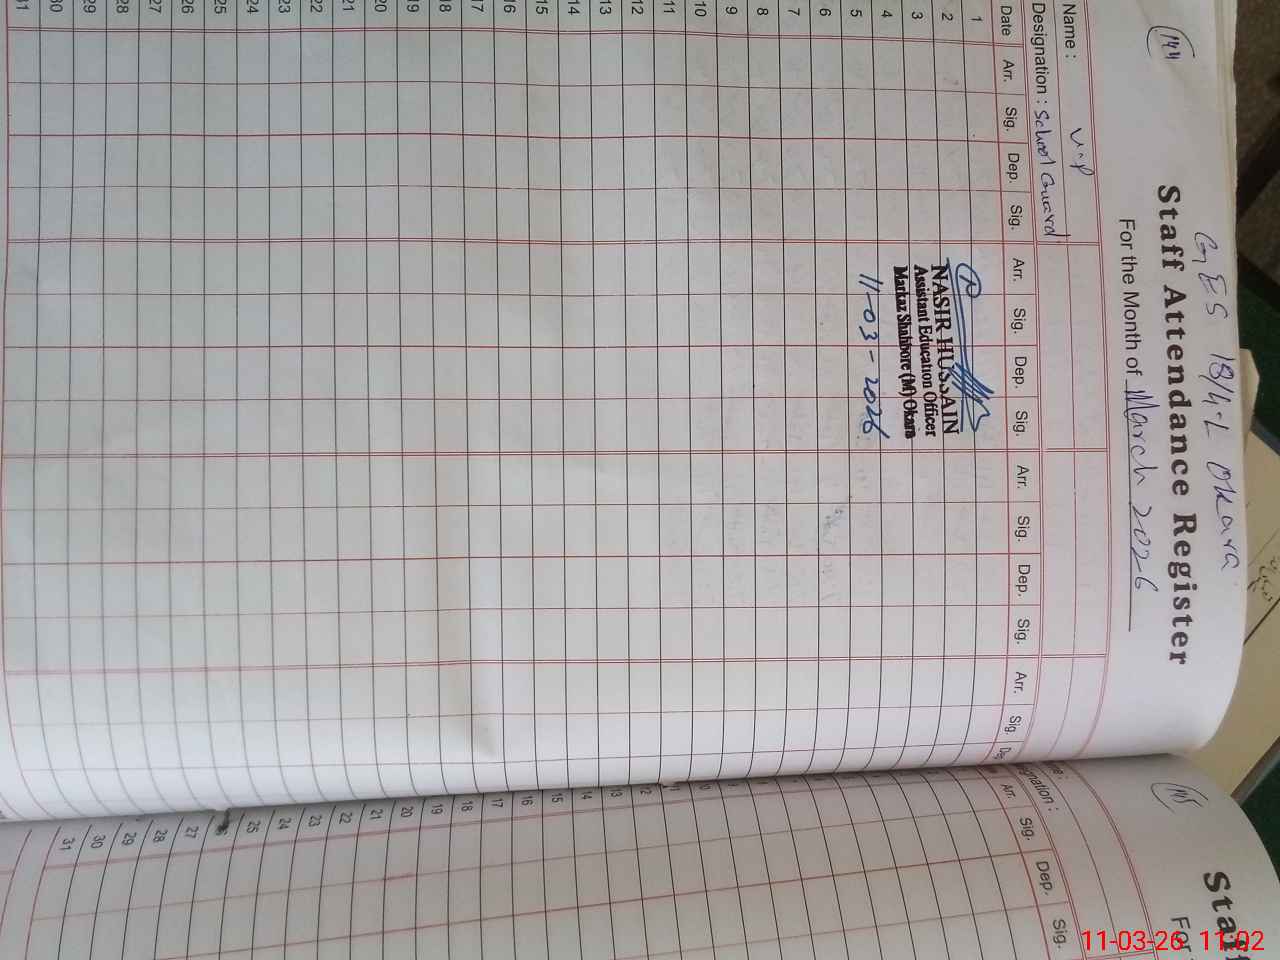 144
GES 18/4-L Okara
Staff Attendance Register
For the Month of March 2026
Name :
Designation : School Guard
Date Arr. Sig. Dep. Sig. Arr. Sig. Dep. Sig. Arr. Sig. Dep. Sig. Arr. Sig. Dep
1
2
3
4
5
6
7
8
9
10
11
12
13
14
15
16
17
18
19
20
21
22
23
24
25
26
27
28
29
30
31
NASIR HUSSAIN
Assistant Education Officer
Markaz Shahbore (M) Okara
11-03-2026
145
Staff
For
Arr. Sig. Dep. Sig.
11
12
13
14
15
16
17
18
19
20
21
22
23
24
25
27
28
29
30
31
11-03-26 11:02